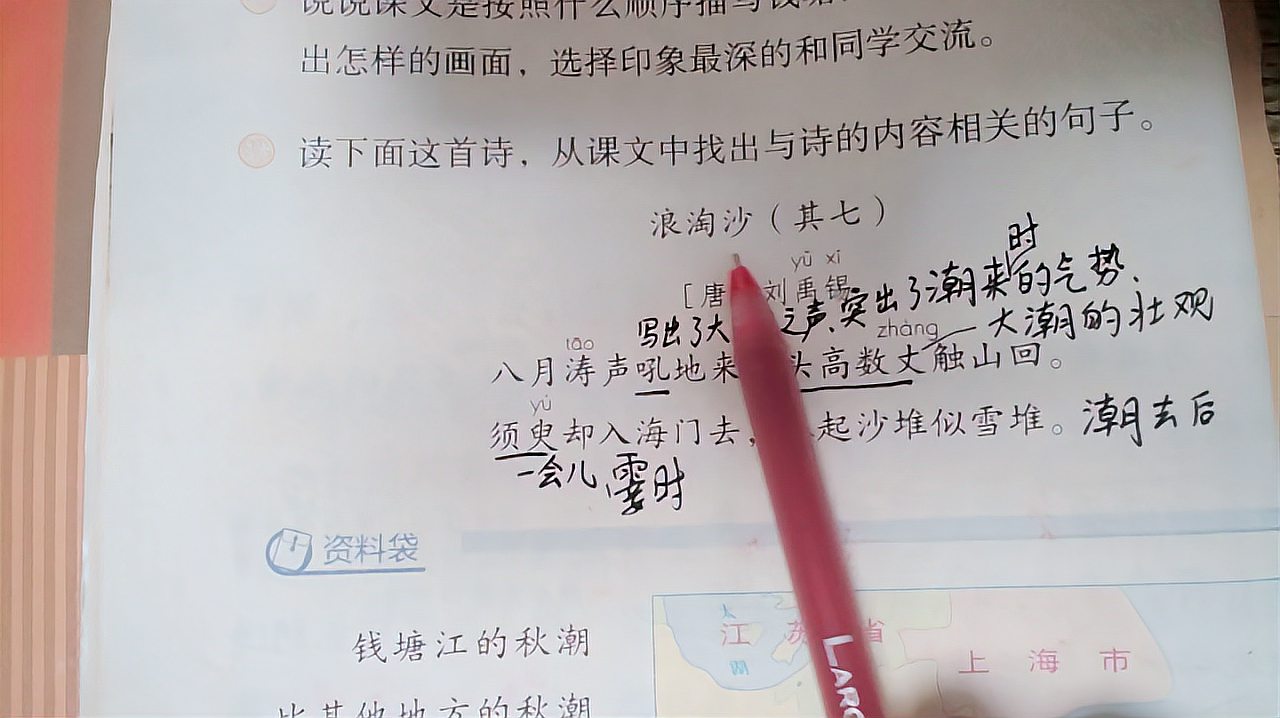 说说课文是按照什么顺序描写钱塘
出怎样的画面，选择印象最深的和同学交流。
读下面这首诗，从课文中找出与诗的内容相关的句子。
浪淘沙（其七）
时
yǔ xī
［唐 刘禹锡
写出了大 之声、突出了潮来的气势．
zhàng 大潮的壮观
tāo
八月涛声吼地来 头高数丈触山回。
yú
须臾却入海门去， 起沙堆似雪堆。潮去后
一会儿 霎时
资料袋
钱塘江的秋潮
比其他地方的秋潮
太
江苏省
湖
上海市
LARG